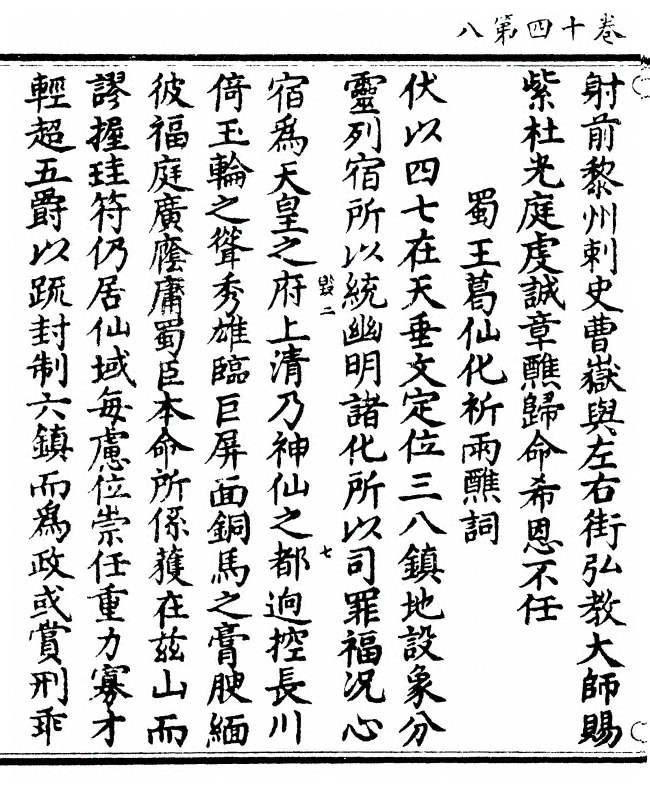 卷十四第八
射前黎州刺史曹嶽與左右街弘教大師賜
紫杜光庭虔誠章醮歸命希恩不任
蜀王葛仙化祈雨醮詞
伏以四七在天垂文定位三八鎮地設象分
靈列宿所以統幽明諸化所以司罪福况心
毀二
七
宿爲天皇之府上清乃神仙之都逈控長川
倚玉輪之聳秀雄臨巨屏面銅馬之膏腴緬
彼福庭廣廕庸蜀臣本命所係䕶在茲山而
謬握珪符仍居仙域每慮位崇任重力寡才
輕超五爵以疏封制六鎮而爲政或賞刑乖